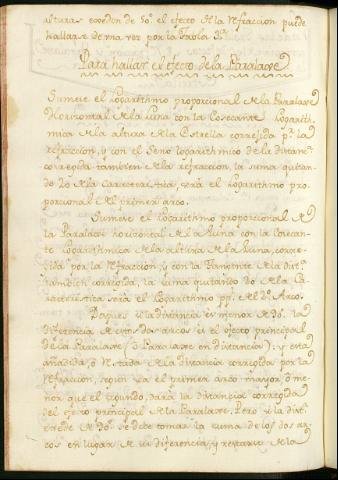 alturas exceden de 50º el efecto de la Refraccion puede
hallarse de una vez por la Tabla 3ª.
Para hallar el efecto de la Paralaxe
Sumese el Logarithmo proporcional de la Paralaxe
Horizontal de la Luna con la Cosecante Logarith-
mica de la altura de la Estrella corregida pr. la
refraccion, y con el Seno logarithmico de la distanc.
corregida tambien de la refraccion, la suma quitan-
do de la Caracteristica, será el Logarithmo pro-
porcional del primer arco.
Sumese el Logarithmo proporcional de
la Paralaxe horizontal de la Luna con la Cosecan-
te Logarithmica de la altura de la Luna, corre-
gida por la Refraccion, y con la Tangente de la dist.
tambien corregida, la suma quitando de la Ca-
racteristica será el Logarithmo pp. del 2º Arco.
la distancia es menor de 90º. la
diferencia de estos dos arcos es el efecto principal
de la Paralaxe (ó Paralaxe en distancia): y esta
añadida, ó restada de la distancia corregida por la
Refraccion, segun sea el primer arco mayor, ó me-
nor que el segundo, dará la distancia corregida
del efecto principal de la Paralaxe. Pero si la dist.
excede de 90º se debe tomar la suma de los dos ar-
cos en lugar de su diferencia, y restarse de la